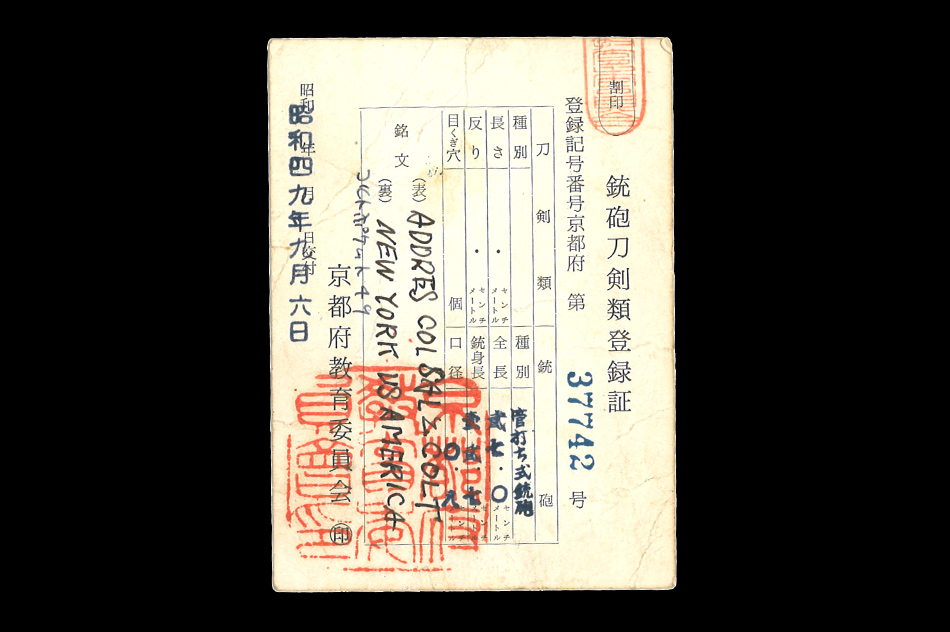 割印
銃砲刀剣類登録証
登録記号番号京都府 第 37742 号
刀剣類 銃砲
種別 種別 管打ち式銃砲
長さ ・ センチメートル 全長 弍七・〇 センチメートル
反り ・ センチメートル 銃身長 壹弍・七 センチメートル
目くぎ穴 個 口径 〇・八 センチメートル
銘文
(表) ADDRES COL SAL COLT
(裏) NEW YORK US AMERICA
昭和 年 月 日交付
昭和四九年九月六日
京都府教育委員会 印